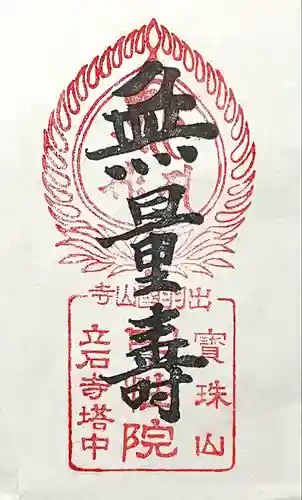 無量壽
出羽山寺
寶珠山
院
立石寺塔中